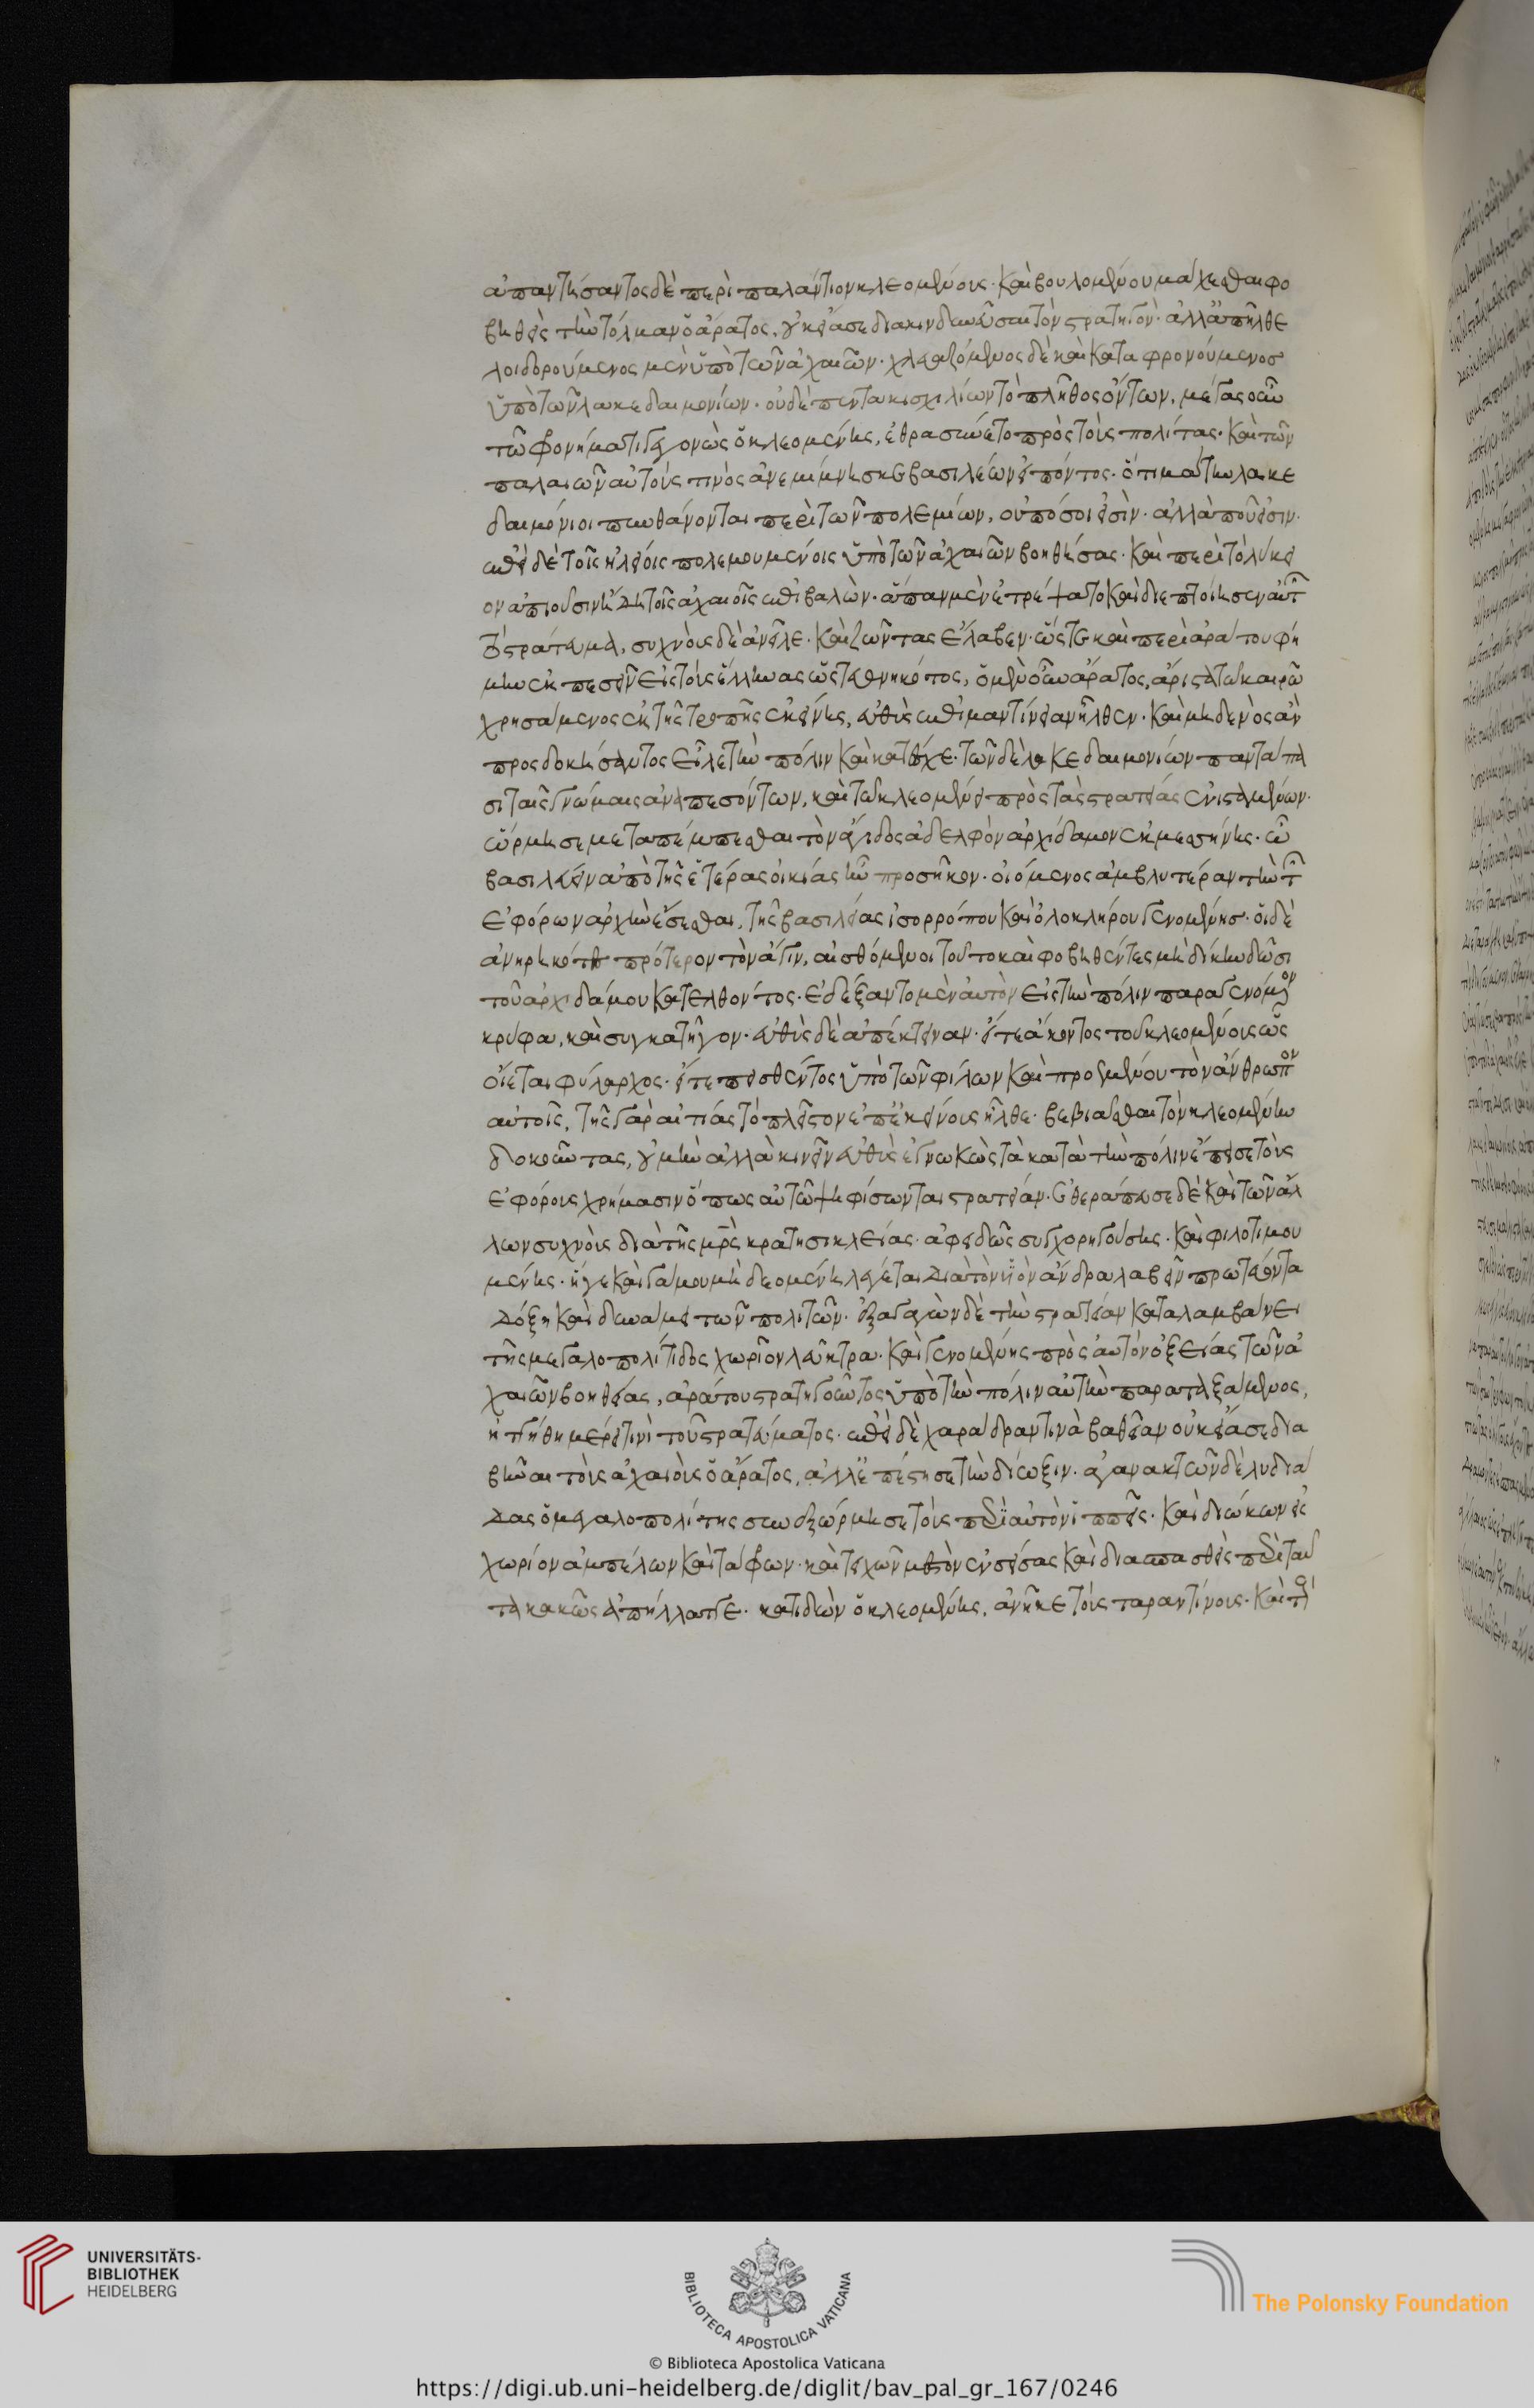 ἀπαντήσαντος δὲ περὶ παλάντιον κλεομένους· καὶ βουλομένου μάχεσθαι φο
βηθεὶς τὴν τόλμαν ὁ ἄρατος, οὐκ εἴασε διακινδυνεῦσαι τὸν στρατηγόν· ἀλλ' ἀπῆλθε
λοιδορούμενος μὲν ὑπὸ τῶν ἀχαιῶν· χλευαζόμενος δὲ καὶ καταφρονούμενος
ὑπὸ τῶν λακεδαιμονίων· οὐδὲ πεντακισχιλίων τὸ πλῆθος ὄντων, μέγας οὖν
τῶ φρονήματι γεγονὼς ὁ κλεομένης, ἐθρασύνετο πρὸς τοὺς πολίτας· καὶ τῶν
παλαιῶν αὐτοὺς τινὸς ἀνεμίμνησκε βασιλέων εἰπόντος· ὅτι μάτην λακε
δαιμόνιοι πυνθάνονται περὶ τῶν πολεμίων, οὐ πόσοι εἰσὶν· ἀλλὰ ποῦ εἰσιν·
ἐπεὶ δὲ τοῖς ἠλείοις πολεμουμένοις ὑπὸ τῶν ἀχαιῶν βοηθήσας· καὶ περὶ τὸ λύκει
ον ἀπιοῦσιν ἤδη τοῖς ἀχαιοῖς ἐπιβαλὼν· ἅπαν μὲν ἐτρέψατο καὶ διεπτοίησεν αὐτῶν
τὸ στράτευμα, συχνοὺς δὲ ἀνεῖλε· καὶ ζῶντας ἔλαβεν· ὥστε καὶ περὶ ἀράτου φή
μην ἐκπεσεῖν εἰς τοὺς ἕλληνας ὡς τεθνηκότος, ὁ μὲν οὖν ἄρατος, ἄριστα τῶ καιρῶ
χρησάμενος ἐκ τῆς τροπῆς ἐκείνης, εὐθὺς ἐπὶ μαντίνειαν ἦλθεν· καὶ μηδενὸς ἂν
προσδοκήσαντος εἷλε τὴν πόλιν καὶ κατέσχε· τῶν δὲ λακεδαιμονίων παντάπα
σι ταῖς γνώμαις ἀναπεσόντων, καὶ τῶ κλεομένει πρὸς τὰς στρατείας ἐνισταμένων·
ὥρμησε μεταπέμπεσθαι τὸν ἄγιδος ἀδελφὸν ἀρχίδαμον ἐκ μεσσήνης· ὧ
βασιλεύειν ἀπὸ τῆς ἑτέρας οἰκίας ἦν προσῆκον· οἰόμενος ἀμβλυτέραν τὴν τῶν
ἐφόρων ἀρχὴν ἔσεσθαι, τῆς βασιλείας ἰσορρόπου καὶ ὁλοκλήρου γενομένης· οἱ δὲ
ἀνῃρηκότες πρότερον τὸν ἄγιν, αἰσθόμενοι τοῦτο καὶ φοβηθέντες μὴ δίκην δῶσι
τοῦ ἀρχιδάμου κατελθόντος· ἐδέξαντο μὲν αὐτὸν εἰς τὴν πόλιν παραγενόμενον
κρύφα, καὶ συγκατῆγον· εὐθὺς δὲ ἀπέκτειναν· εἴτε ἄκοντος τοῦ κλεομένους ὡς
οἴεται φύλαρχος· εἴτε πεισθέντος ὑπὸ τῶν φίλων καὶ προεμένου τὸν ἄνθρωπον
αὐτοῖς, τῆς γὰρ αἰτίας τὸ πλεῖστον ἐπ' ἐκείνους ἦλθε· βεβιάσθαι τὸν κλεομένην
δοκοῦντας, οὐ μὴν ἀλλὰ κινεῖν εὐθὺς ἐγνωκὼς τὰ κατὰ τὴν πόλιν ἔπεισε τοὺς
ἐφόρους χρήμασιν ὅπως αὐτῶ ψηφίσωνται στρατείαν· ἐθεράπευσε δὲ καὶ τῶν ἄλ
λων συχνοὺς διὰ τῆς μητρὸς κρατησικλείας· ἀφειδῶς συγχορηγούσης· καὶ φιλοτιμου
μένης· ἥ γε καὶ γάμου μὴ δεομένη λέγεται διὰ τὸν υἱὸν ἄνδρα λαβεῖν πρωτεύοντα
δόξη καὶ δυνάμει τῶν πολιτῶν· ἐξαγαγὼν δὲ τὴν στρατείαν καταλαμβάνει
τῆς μεγαλοπολίτιδος χωρίον λεῦκτρα· καὶ γενομένης πρὸς αὐτὸν ὀξείας τῶν ἀ
χαιῶν βοηθείας, ἀράτου στρατηγοῦντος ὑπὸ τὴν πόλιν αὐτὴν παραταξάμενος,
ἡττήθη μέρει τινὶ τοῦ στρατεύματος· ἐπεὶ δὲ χαράδραν τινὰ βαθεῖαν οὐκ εἴασε δια
βῆναι τοὺς ἀχαιοὺς ὁ ἄρατος, ἀλλ' ἐπέστησε τὴν δίωξιν· ἀγανακτῶν δὲ λυδιά
δας ὁ μεγαλοπολίτης συνεξώρμησε τοὺς περὶ αὐτὸν ἱππεῖς· καὶ διώκων εἰς
χωρίον ἀμπέλων καὶ τάφρων· καὶ τειχῶν μεστὸν ἐνσείσας καὶ διασπασθεὶς περὶ ταῦ
τα κακῶς ἀπήλλαττε· κατιδὼν ὁ κλεομένης, ἀνῆκε τοὺς ταραντίνους· καὶ τοὺς
UNIVERSITÄTS-
BIBLIOTHEK
HEIDELBERG
BIBLIOTECA APOSTOLICA VATICANA
The Polonsky Foundation
© Biblioteca Apostolica Vaticana
https://digi.ub.uni-heidelberg.de/diglit/bav_pal_gr_167/0246